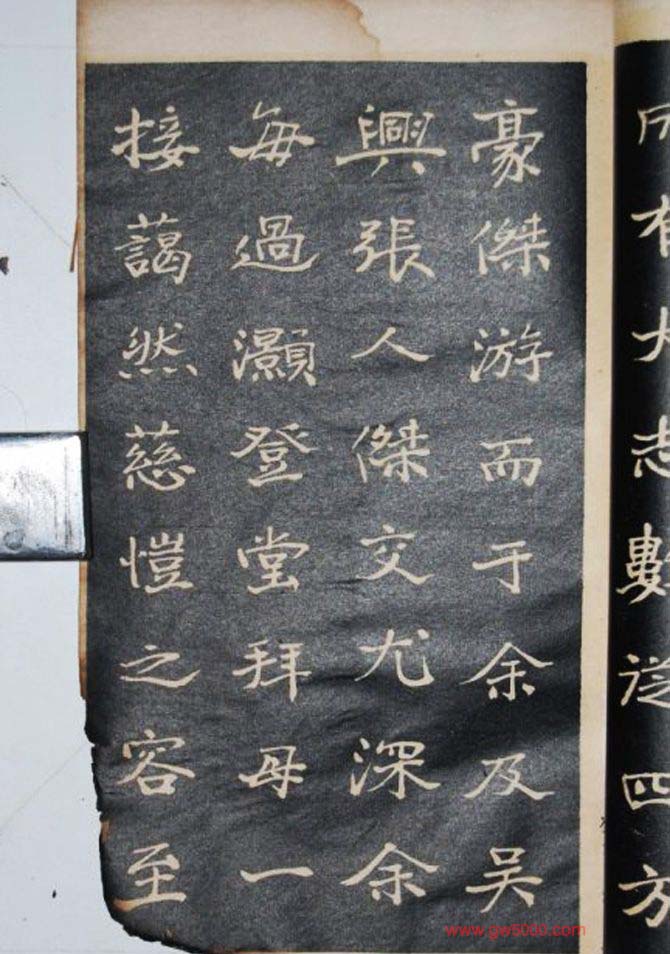 有大志數從四方
豪傑游而于余及吴
興張人傑交尤深余
每過灝登堂拜母一
接藹然慈愷之容至
www.gw5000.com